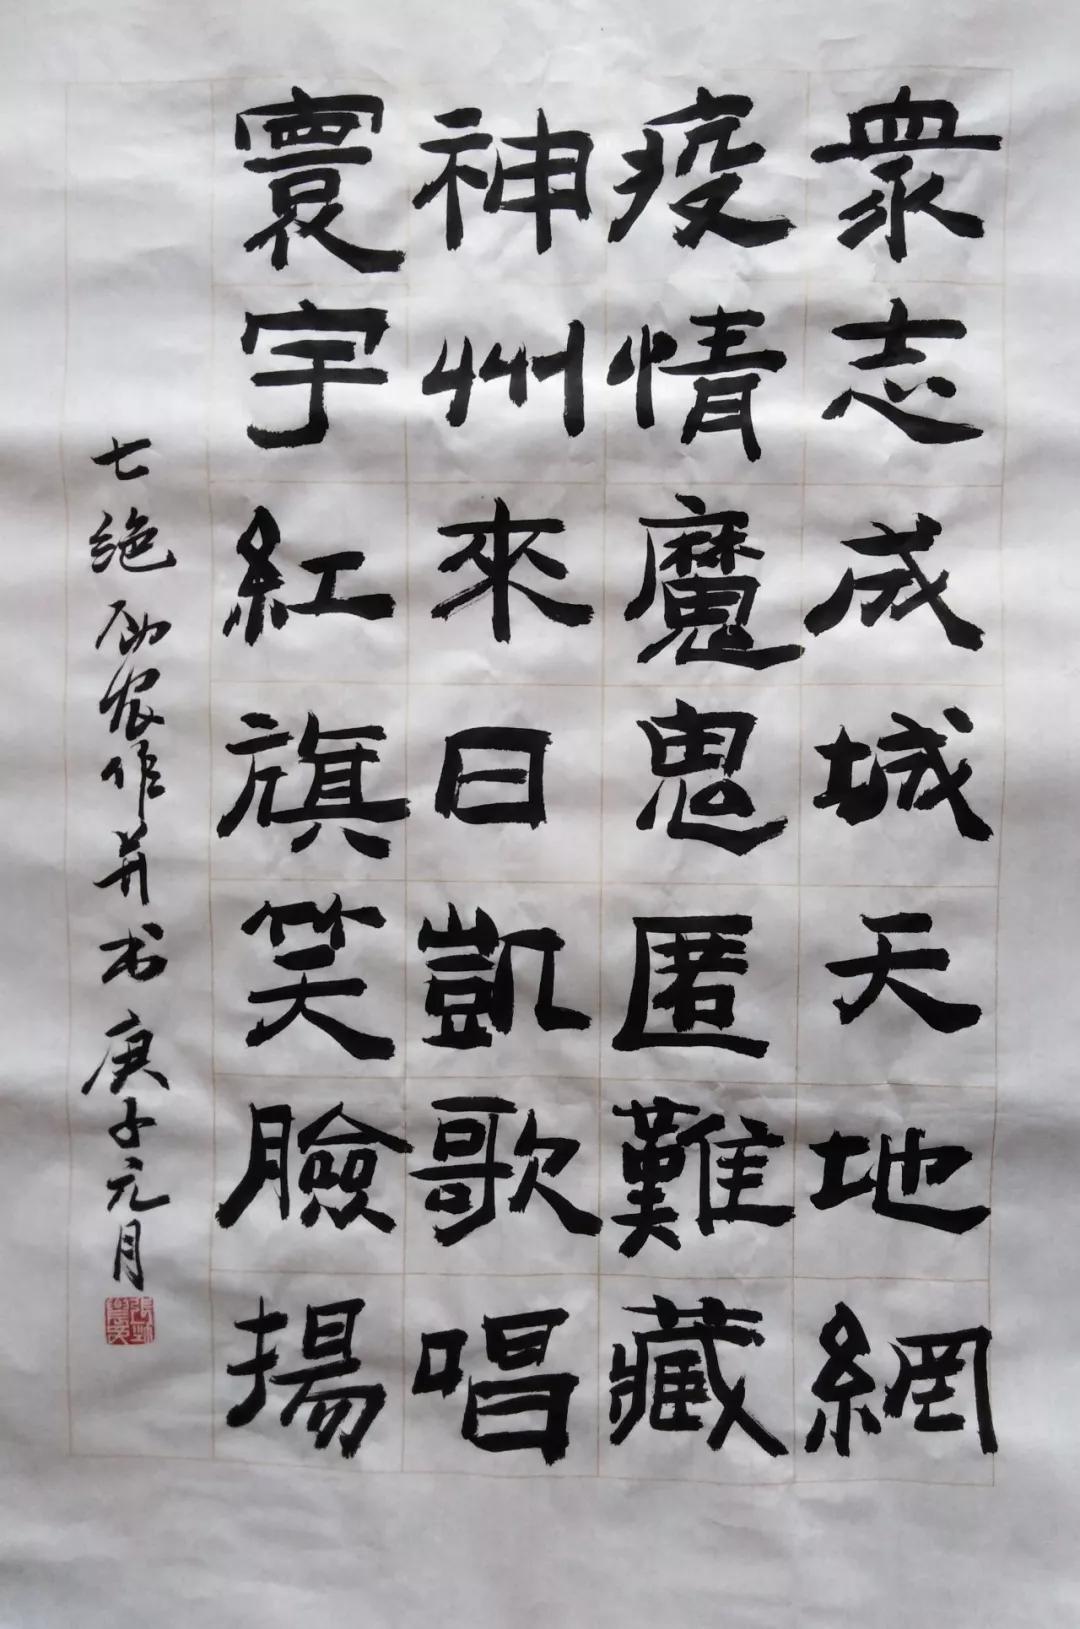 衆志成城天地網
疫情魔鬼匿難藏
神州來日凱歌唱
寰宇紅旗笑臉揚
七絶 勁農作并书 庚子元月